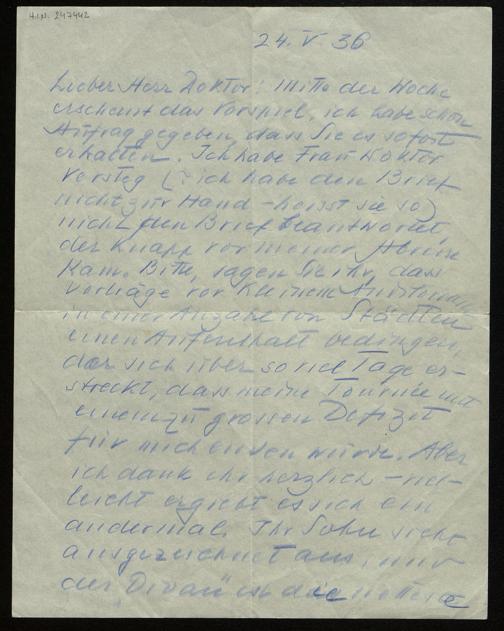 H.I.N. 247442
24. V 36
Lieber Herr Doktor! Mitte der Woche
erscheint das Vorspiel, ich habe schon
Auftrag gegeben, dass Sie es sofort
erhalten. Ich habe Frau Doktor
Versteg (? ich habe den Brief
nicht zur Hand – heisst sie so)
nicht den Brief beantwortet,
der knapp vor meiner Abreise
kam. Bitte, sagen Sie ihr, dass
Vorträge vor kleinem Auditorium
in einer Anzahl von Städten
einen Aufenthalt bedingen,
der sich über so viel Tage er-
streckt, dass meine Tournée mit
einem zu grossen Defizit
für mich enden würde. Aber
ich dank ihr herzlich – viel-
leicht ergiebt es sich ein
andermal. Ihr Sohn sieht
ausgezeichnet aus, nur
der „Divan" ist